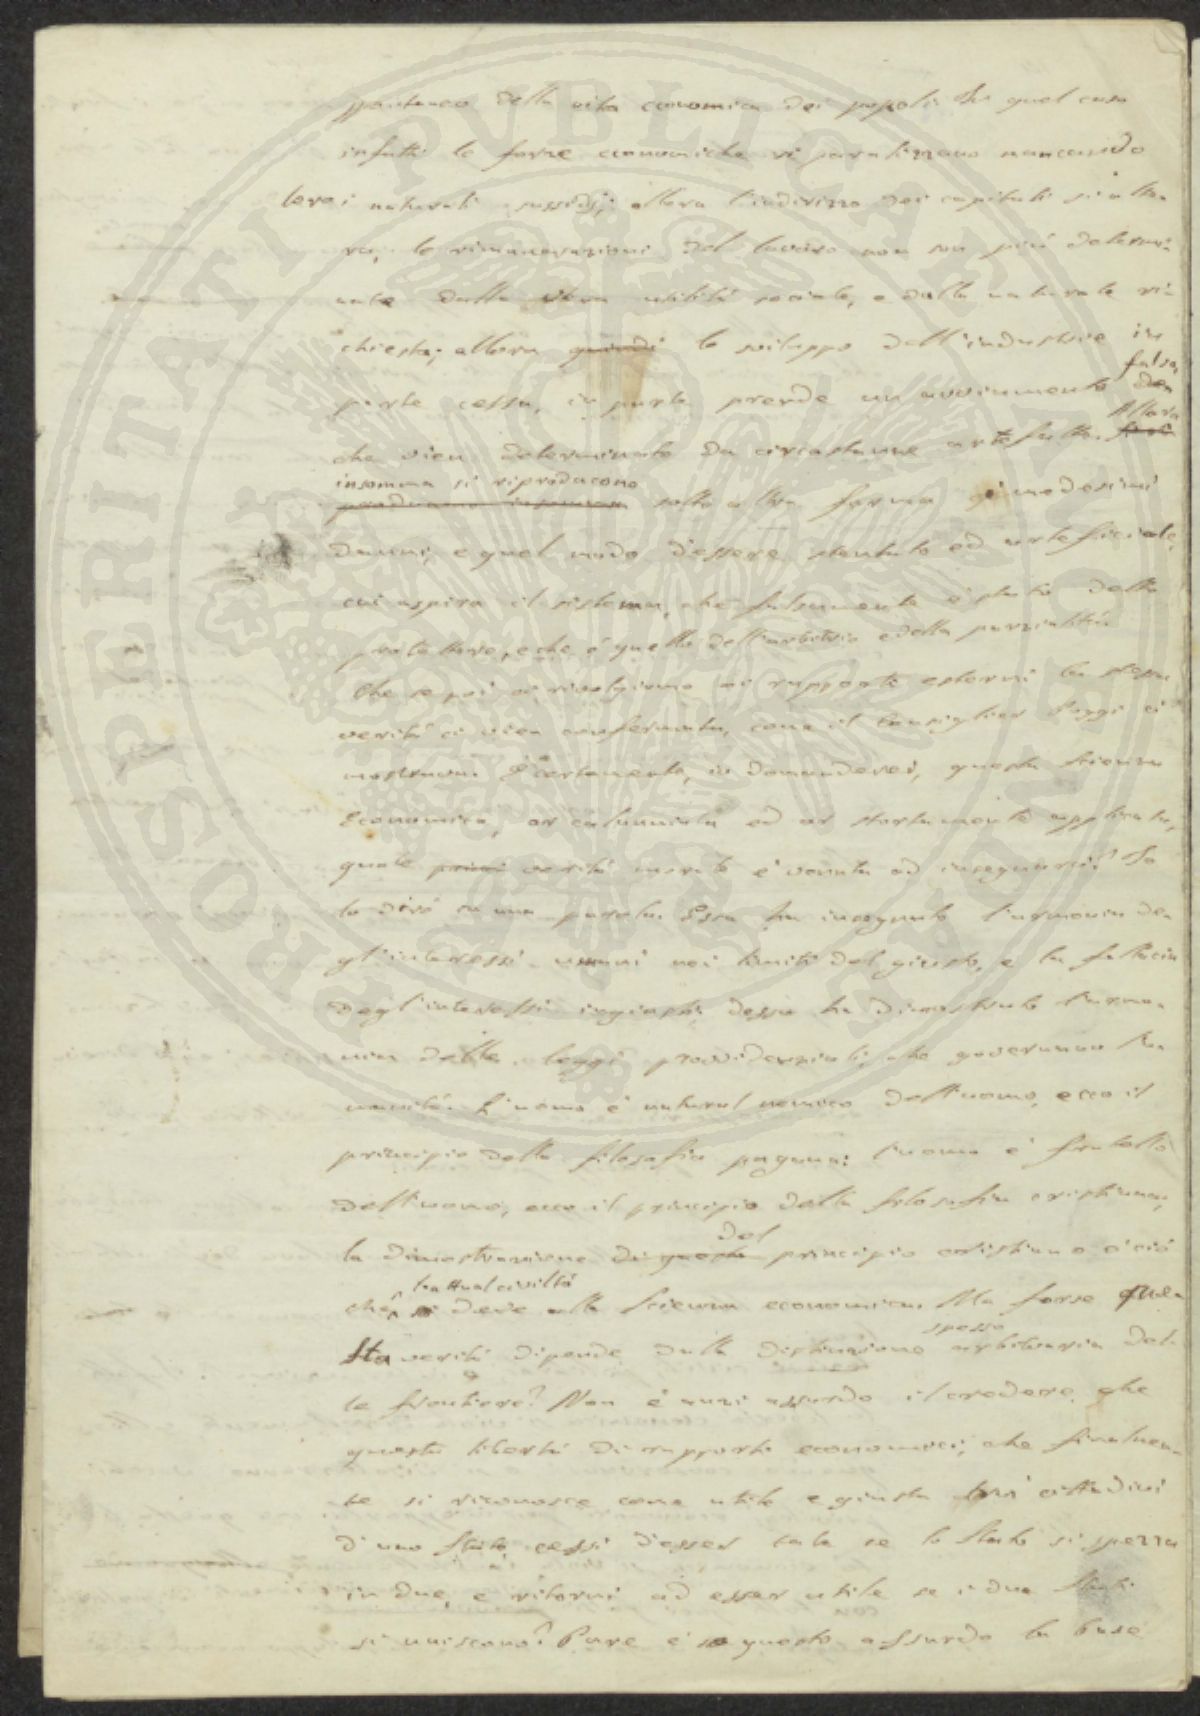 spontaneo della vita economica dei popoli. In quel caso
infatti le forze economiche si paralizzano mancando
loro i naturali sussidj; allora l'indirizzo dei capitali si alte-
ra, le rimunerazioni del lavoro non son più determi-
nate dalla vera utilità sociale, e dalla naturale ri-
chiesta; allora quindi lo sviluppo dell'industrie in
parte cessa, in parte prende un avviamento falso,
che vien determinato da circostanze artefatte. Allora
insomma si riproducono
producono insomma sotto altra forma gi'medesimi
danni, e quel modo d'essere stentato ed arteficiale,
cui aspira il sistema, che falsamente è stato detto
protettore, e che è quello dell'arbitrio e della parzialità.
Che se poi ci rivolgiamo ai rapporti esterni la stessa
verità ci vien confermata, come il Consiglier Poggi ci
mostrava. E certamente, io domanderei, questa scienza
Economica, or calunniata ed or stortamente applicata,
quale verità morale è venuta ad insegnarci? Io
lo dirò in una parola. Essa ha insegnato l'armonia de-
gl'interessi umani nei limiti del giusto, e la fallacia
degl'interessi ingiusti; dessa ha dimostrato l'armo-
nia delle leggi provvidenziali, che governano l'u-
manità. L'uomo è natural nemico dell'uomo, ecco il
principio della filosofia pagana: l'uomo è fratello
dell'uomo, ecco il principio della filosofia cristiana;
del
la dimostrazione di questo principio cristiano è ciò
l'attual civiltà
che si deve alla Scienza economica. Ma forse que-
spesso
sta verità dipende dalla distinzione arbitraria del-
le frontiere? Non è anzi assurdo il credere, che
questa libertà di rapporti economici, che finalmen-
te si riconosce come utile e giusta tra i cittadini
d'uno stato, cessi d'esser tale se lo Stato si spezza
in due, e ritorni ad esser utile se i due Stati
si uniscono? Pure è su questo assurdo la base